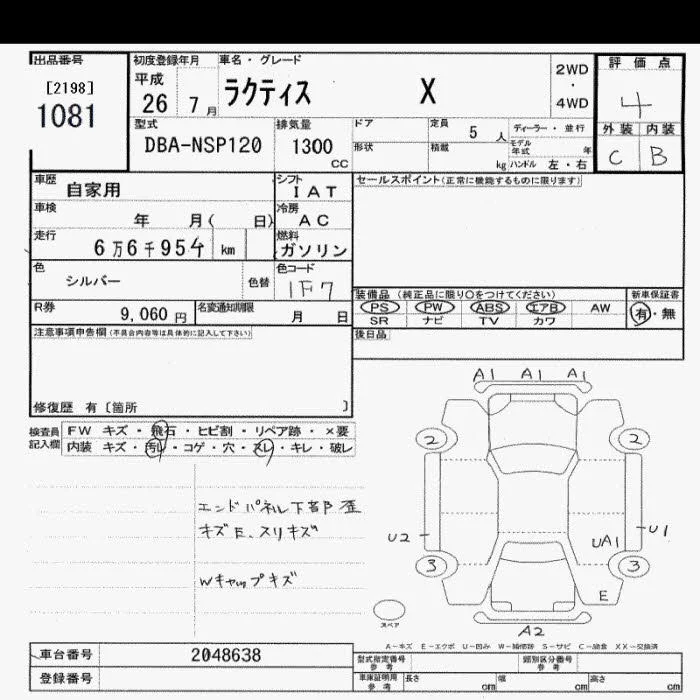 出品番号
[2198]
1081
初度登録年月
平成
26 7 月
車名・グレード
ラクティス X
2WD
・
4WD
評価点
4
外装 内装
C B
型式
DBA-NSP120
排気量
1300
CC
ドア
定員
5 人
ディーラー・並行
形状
積載
kg
モデル年式 年
ハンドル 左・右
車歴
自家用
シフト
IAT
セールスポイント(正常に機能するものに限ります)
車検
年 月( 日)
冷房
AC
走行
6万6千954 km
燃料
ガソリン
色
シルバー
色替
色コード
1F7
装備品 (純正品に限り○をつけてください)
新車保証書
PS PW ABS エアB AW
SR ナビ TV カワ
有・無
R券
9,060 円
名変通知期限
月 日
後日品
注意事項申告欄(不具合内容等は具体的に記入して下さい)
修復歴 有〔箇所 〕
検査員記入欄
FW キズ・飛石・ヒビ割・リペア跡・×要
内装 キズ・汚レ・コゲ・穴・スレ・キレ・破レ
エンドパネル下部歪
キズE、スリキズ
Wキャップキズ
A1 A1 A1
2 2
U2 U1
UA1
3 3
E
スペア
A2
A-キズ E-エクボ U-凹み W-補修跡 S-サビ C-腐食 XX-交換済
車台番号 2048638
登録番号
型式指定番号 参考
類別区分番号 参考
車庫証明用 参考
長さ cm
幅 cm
高さ cm